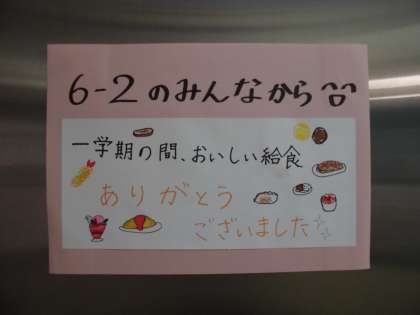 6-2のみんなから
一学期の間、おいしい給食
ありがとう
ございました